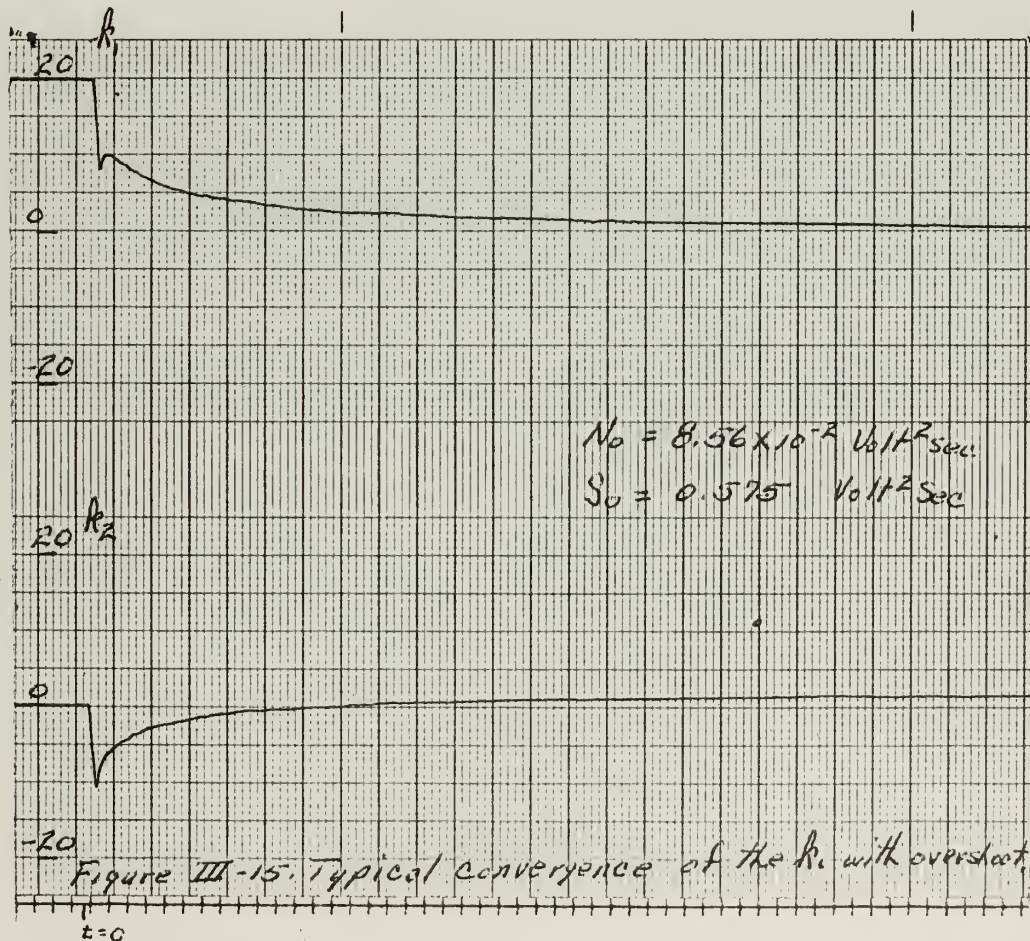 k₁
20
0
-20
N₀ = 8.56 x 10⁻² Volt² sec.
S₀ = 0.575 Volt² Sec
k₂
20
0
-20
Figure III-15. Typical convergence of the kᵢ with overshoot.
t=0